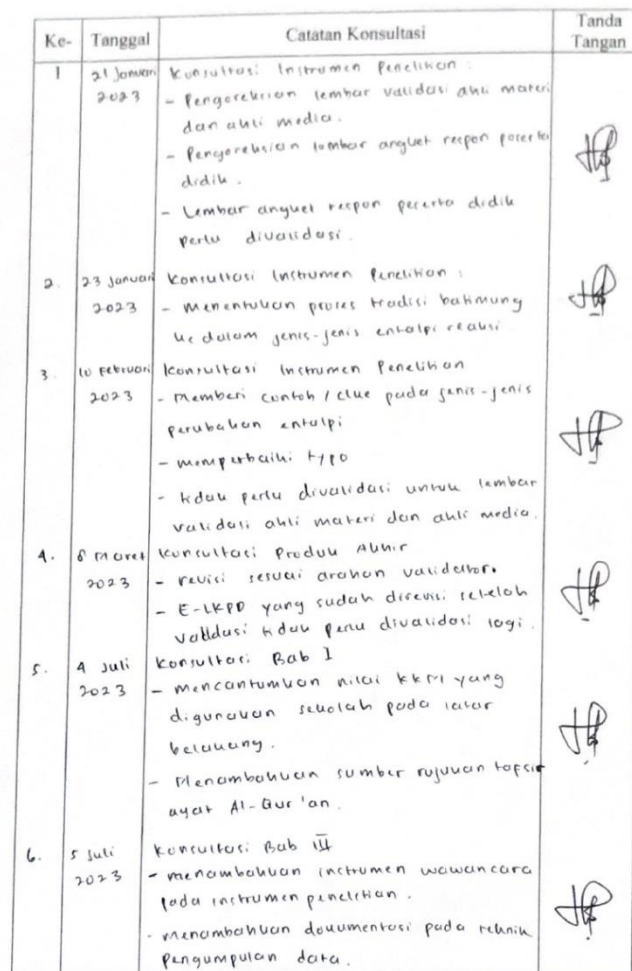 Ke- Tanggal Catatan Konsultasi Tanda Tangan
1 21 Januari 2023 Konsultasi Instrumen Penelitian :
- Pengoreksian lembar validasi ahli materi
dan ahli media.
- Pengoreksian lembar angket respon peserta
didik.
- Lembar angket respon peserta didik
perlu divalidasi.
2. 23 Januari 2023 Konsultasi Instrumen Penelitian :
- Menentukan proses tradisi batimung
ke dalam jenis-jenis entalpi reaksi
3. 10 Februari 2023 Konsultasi Instrumen Penelitian
- Memberi contoh / clue pada jenis-jenis
perubahan entalpi
- memperbaiki typo
- tidak perlu divalidasi untuk lembar
validasi ahli materi dan ahli media.
4. Maret 2023 Konsultasi Produk Akhir
- revisi sesuai arahan validator.
- E-LKPD yang sudah direvisi setelah
validasi tidak perlu divalidasi lagi.
5. 4 Juli 2023 Konsultasi Bab I
- mencantumkan nilai KKM yang
digunakan sekolah pada latar
belakang.
- Menambahkan sumber rujukan tafsir
ayat Al-Qur'an.
6. 5 Juli 2023 Konsultasi Bab III
- menambahkan instrumen wawancara
pada instrumen penelitian.
- menambahkan dokumentasi pada teknik
pengumpulan data.